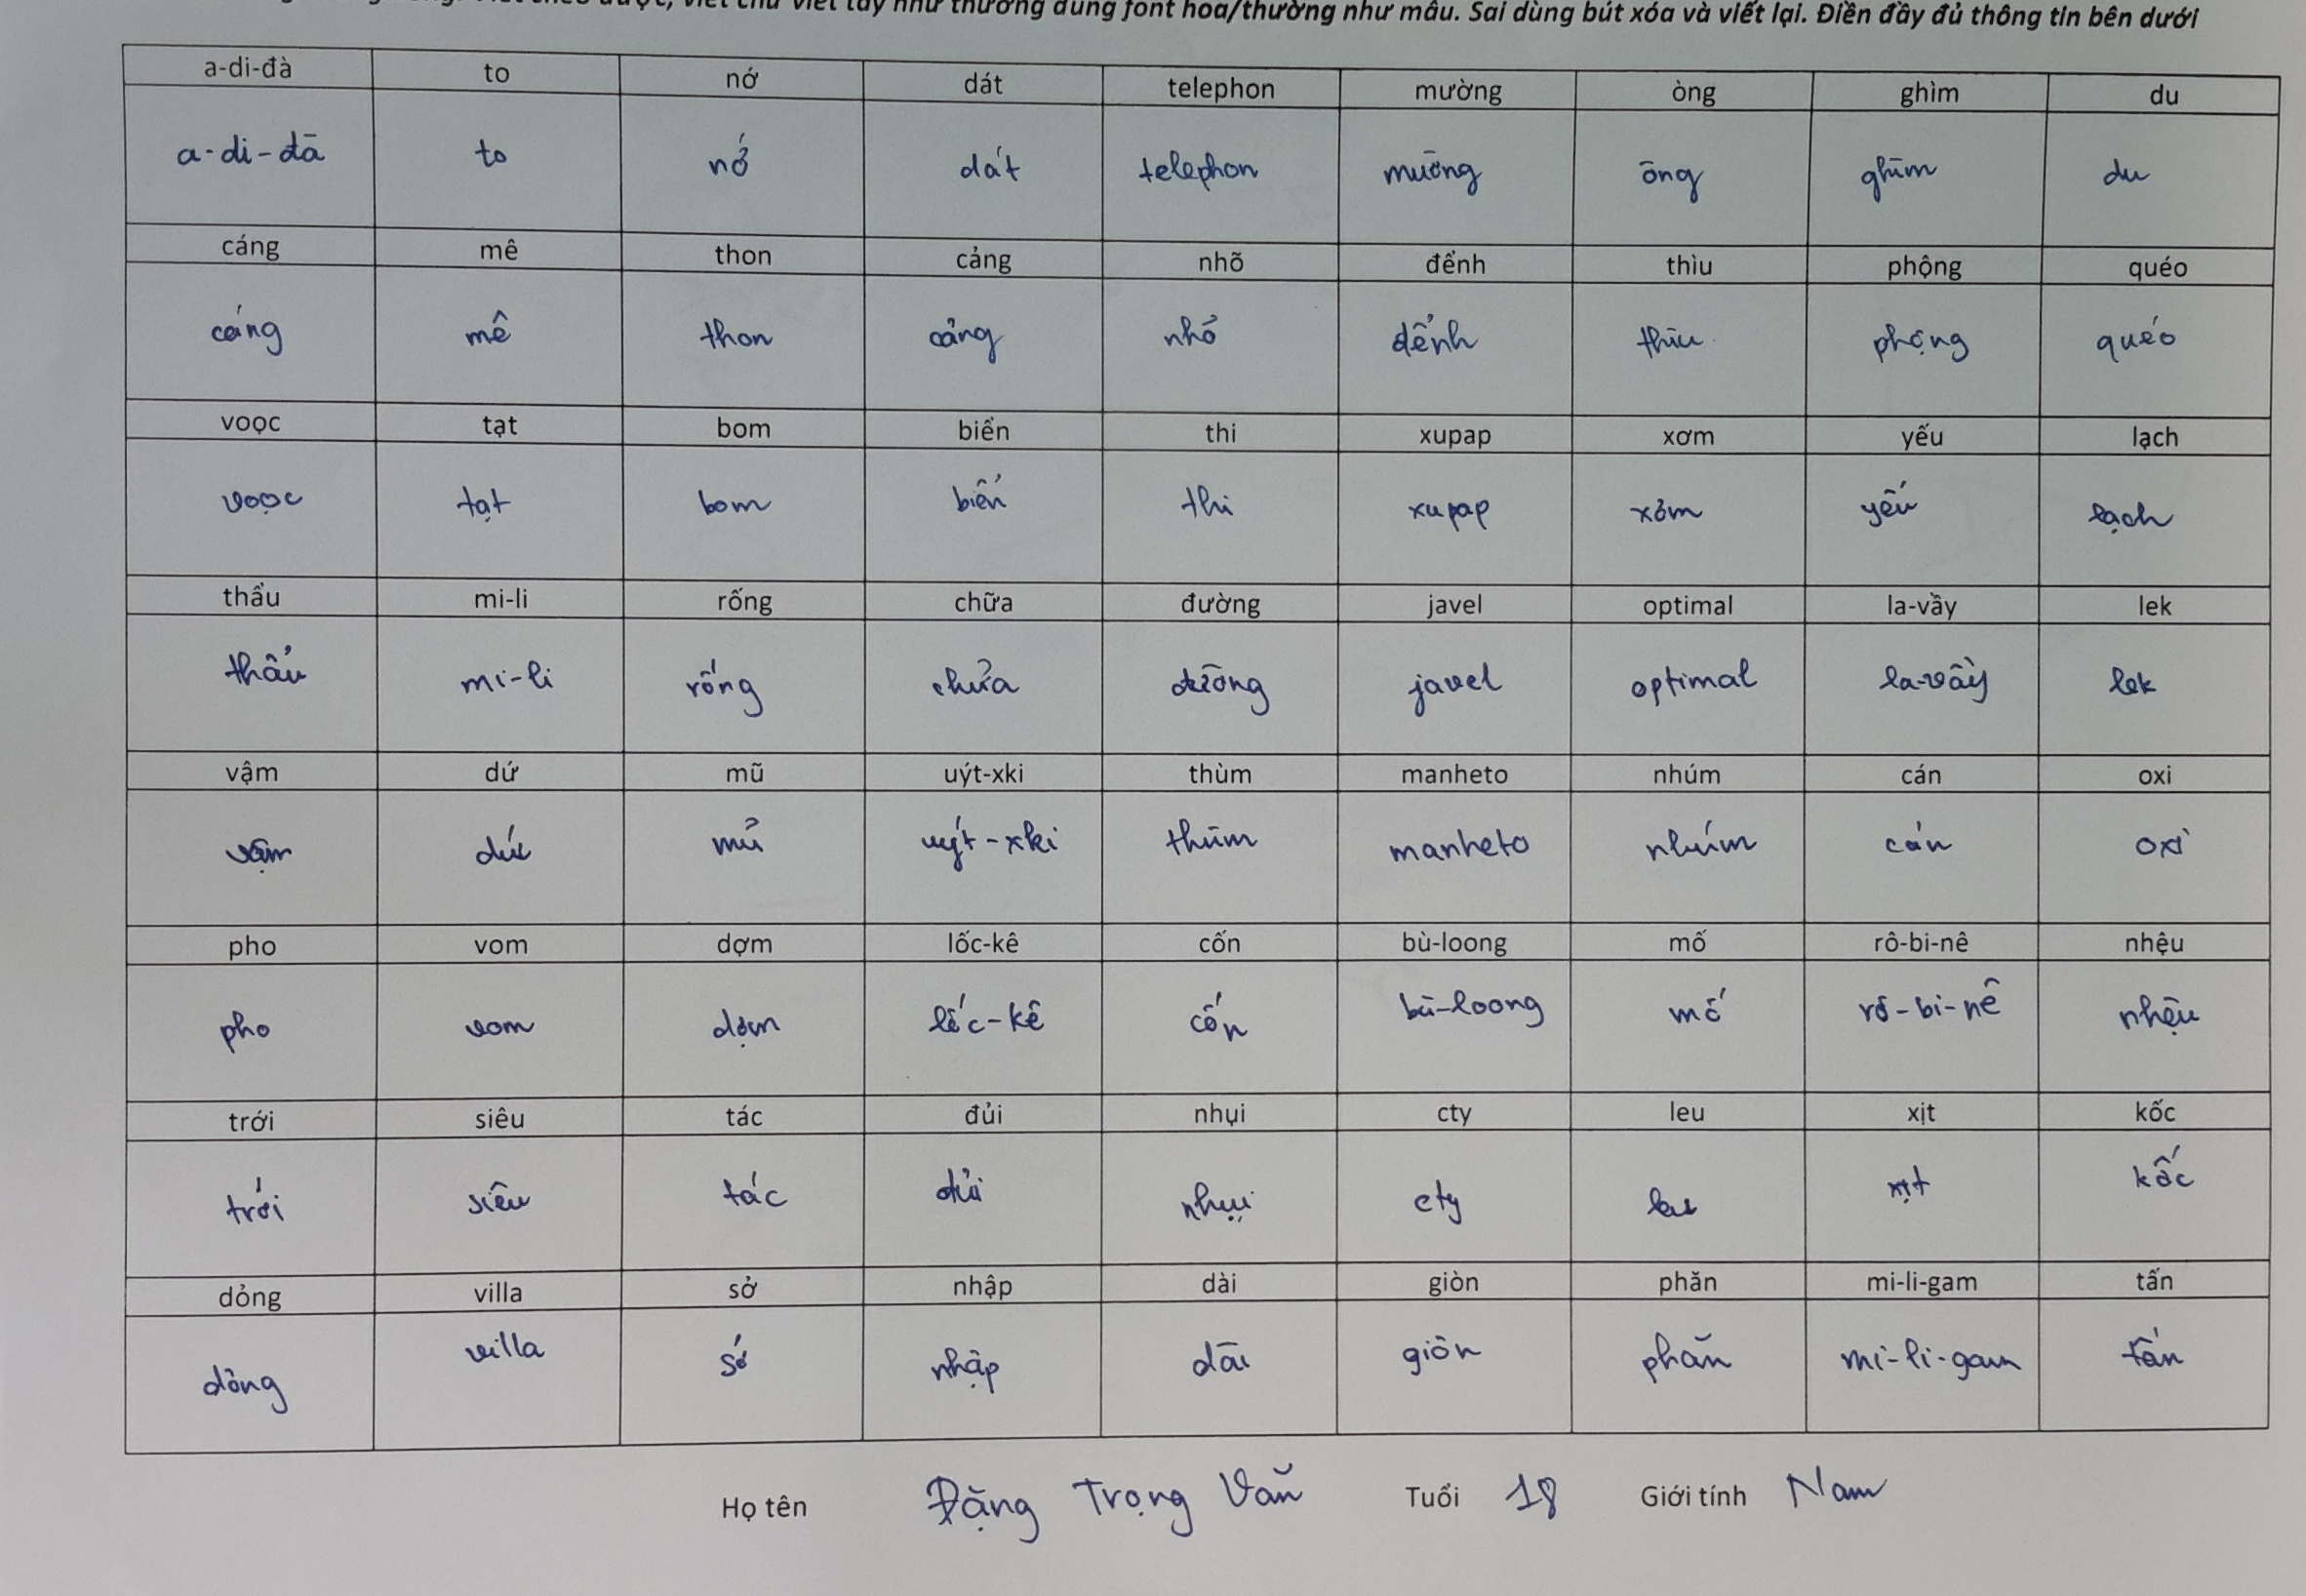 viết chữ viết tay như thường dùng font hoa/thường như mẫu. Sai dùng bút xóa và viết lại. Điền đầy đủ thông tin bên dưới
a-di-đà to nớ dát telephon mường òng ghìm du
a-di-đà to nớ dát telephon mường òng ghìm du
cáng mê thon cảng nhõ đểnh thìu phộng quéo
cáng mê thon cảng nhõ đểnh thìu phộng quéo
voọc tạt bom biển thi xupap xơm yếu lạch
voọc tạt bom biển thi xupap xơm yếu lạch
thẩu mi-li rống chữa đường javel optimal la-vầy lek
thẩu mi-li rống chữa đường javel optimal la-vầy lek
vậm dứ mũ uýt-xki thùm manheto nhúm cán oxi
vậm dứ mũ uýt-xki thùm manheto nhúm cán oxi
pho vom dợm lốc-kê cốn bù-loong mố rô-bi-nê nhệu
pho vom dợm lốc-kê cốn bù-loong mố rô-bi-nê nhệu
trới siêu tác đủi nhụi cty leu xịt kốc
trới siêu tác đủi nhụi cty leu xịt kốc
dỏng villa sở nhập dài giòn phăn mi-li-gam tấn
dỏng villa sở nhập dài giòn phăn mi-li-gam tấn
Họ tên Đặng Trọng Văn Tuổi 18 Giới tính Nam